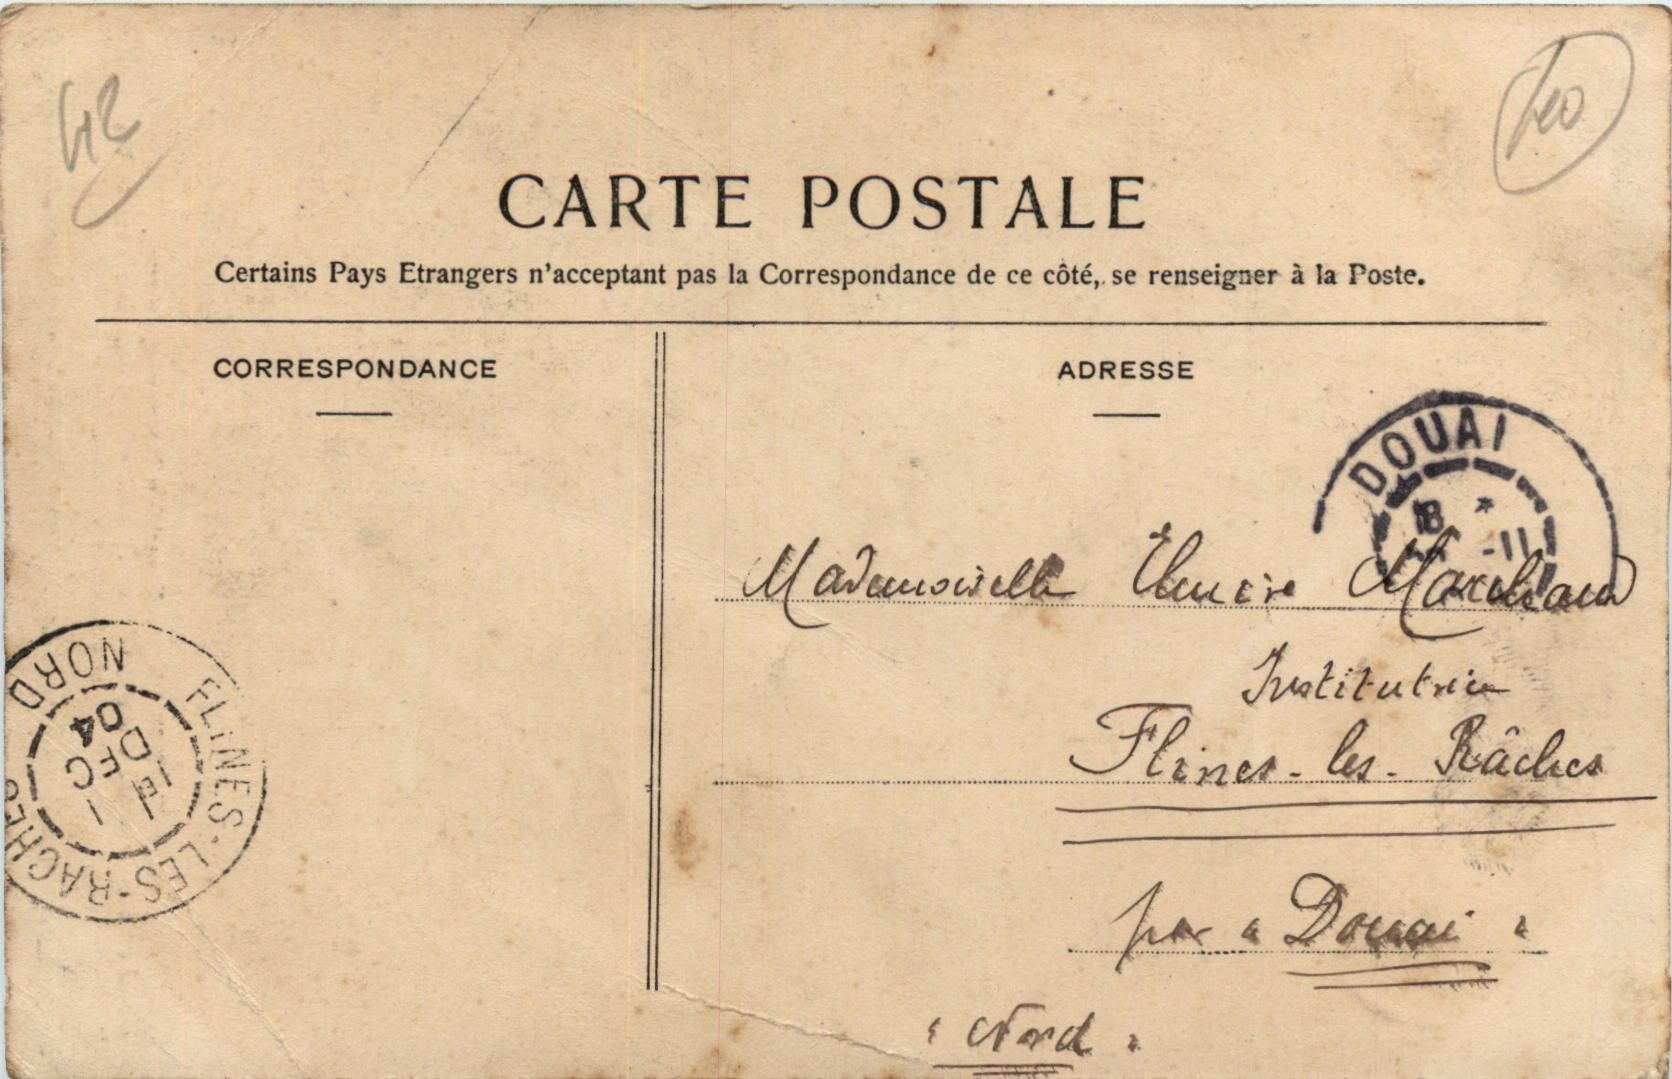 42
40
CARTE POSTALE
Certains Pays Etrangers n'acceptant pas la Correspondance de ce côté, se renseigner à la Poste.
CORRESPONDANCE
ADRESSE
DOUAI
8 *
-11
Mademoiselle Elmire Marchand
Institutrice
Flines-les-Râches
par "Douai"
"Nord"
FLINES-LES-RACHES
NORD
1
DEC
04